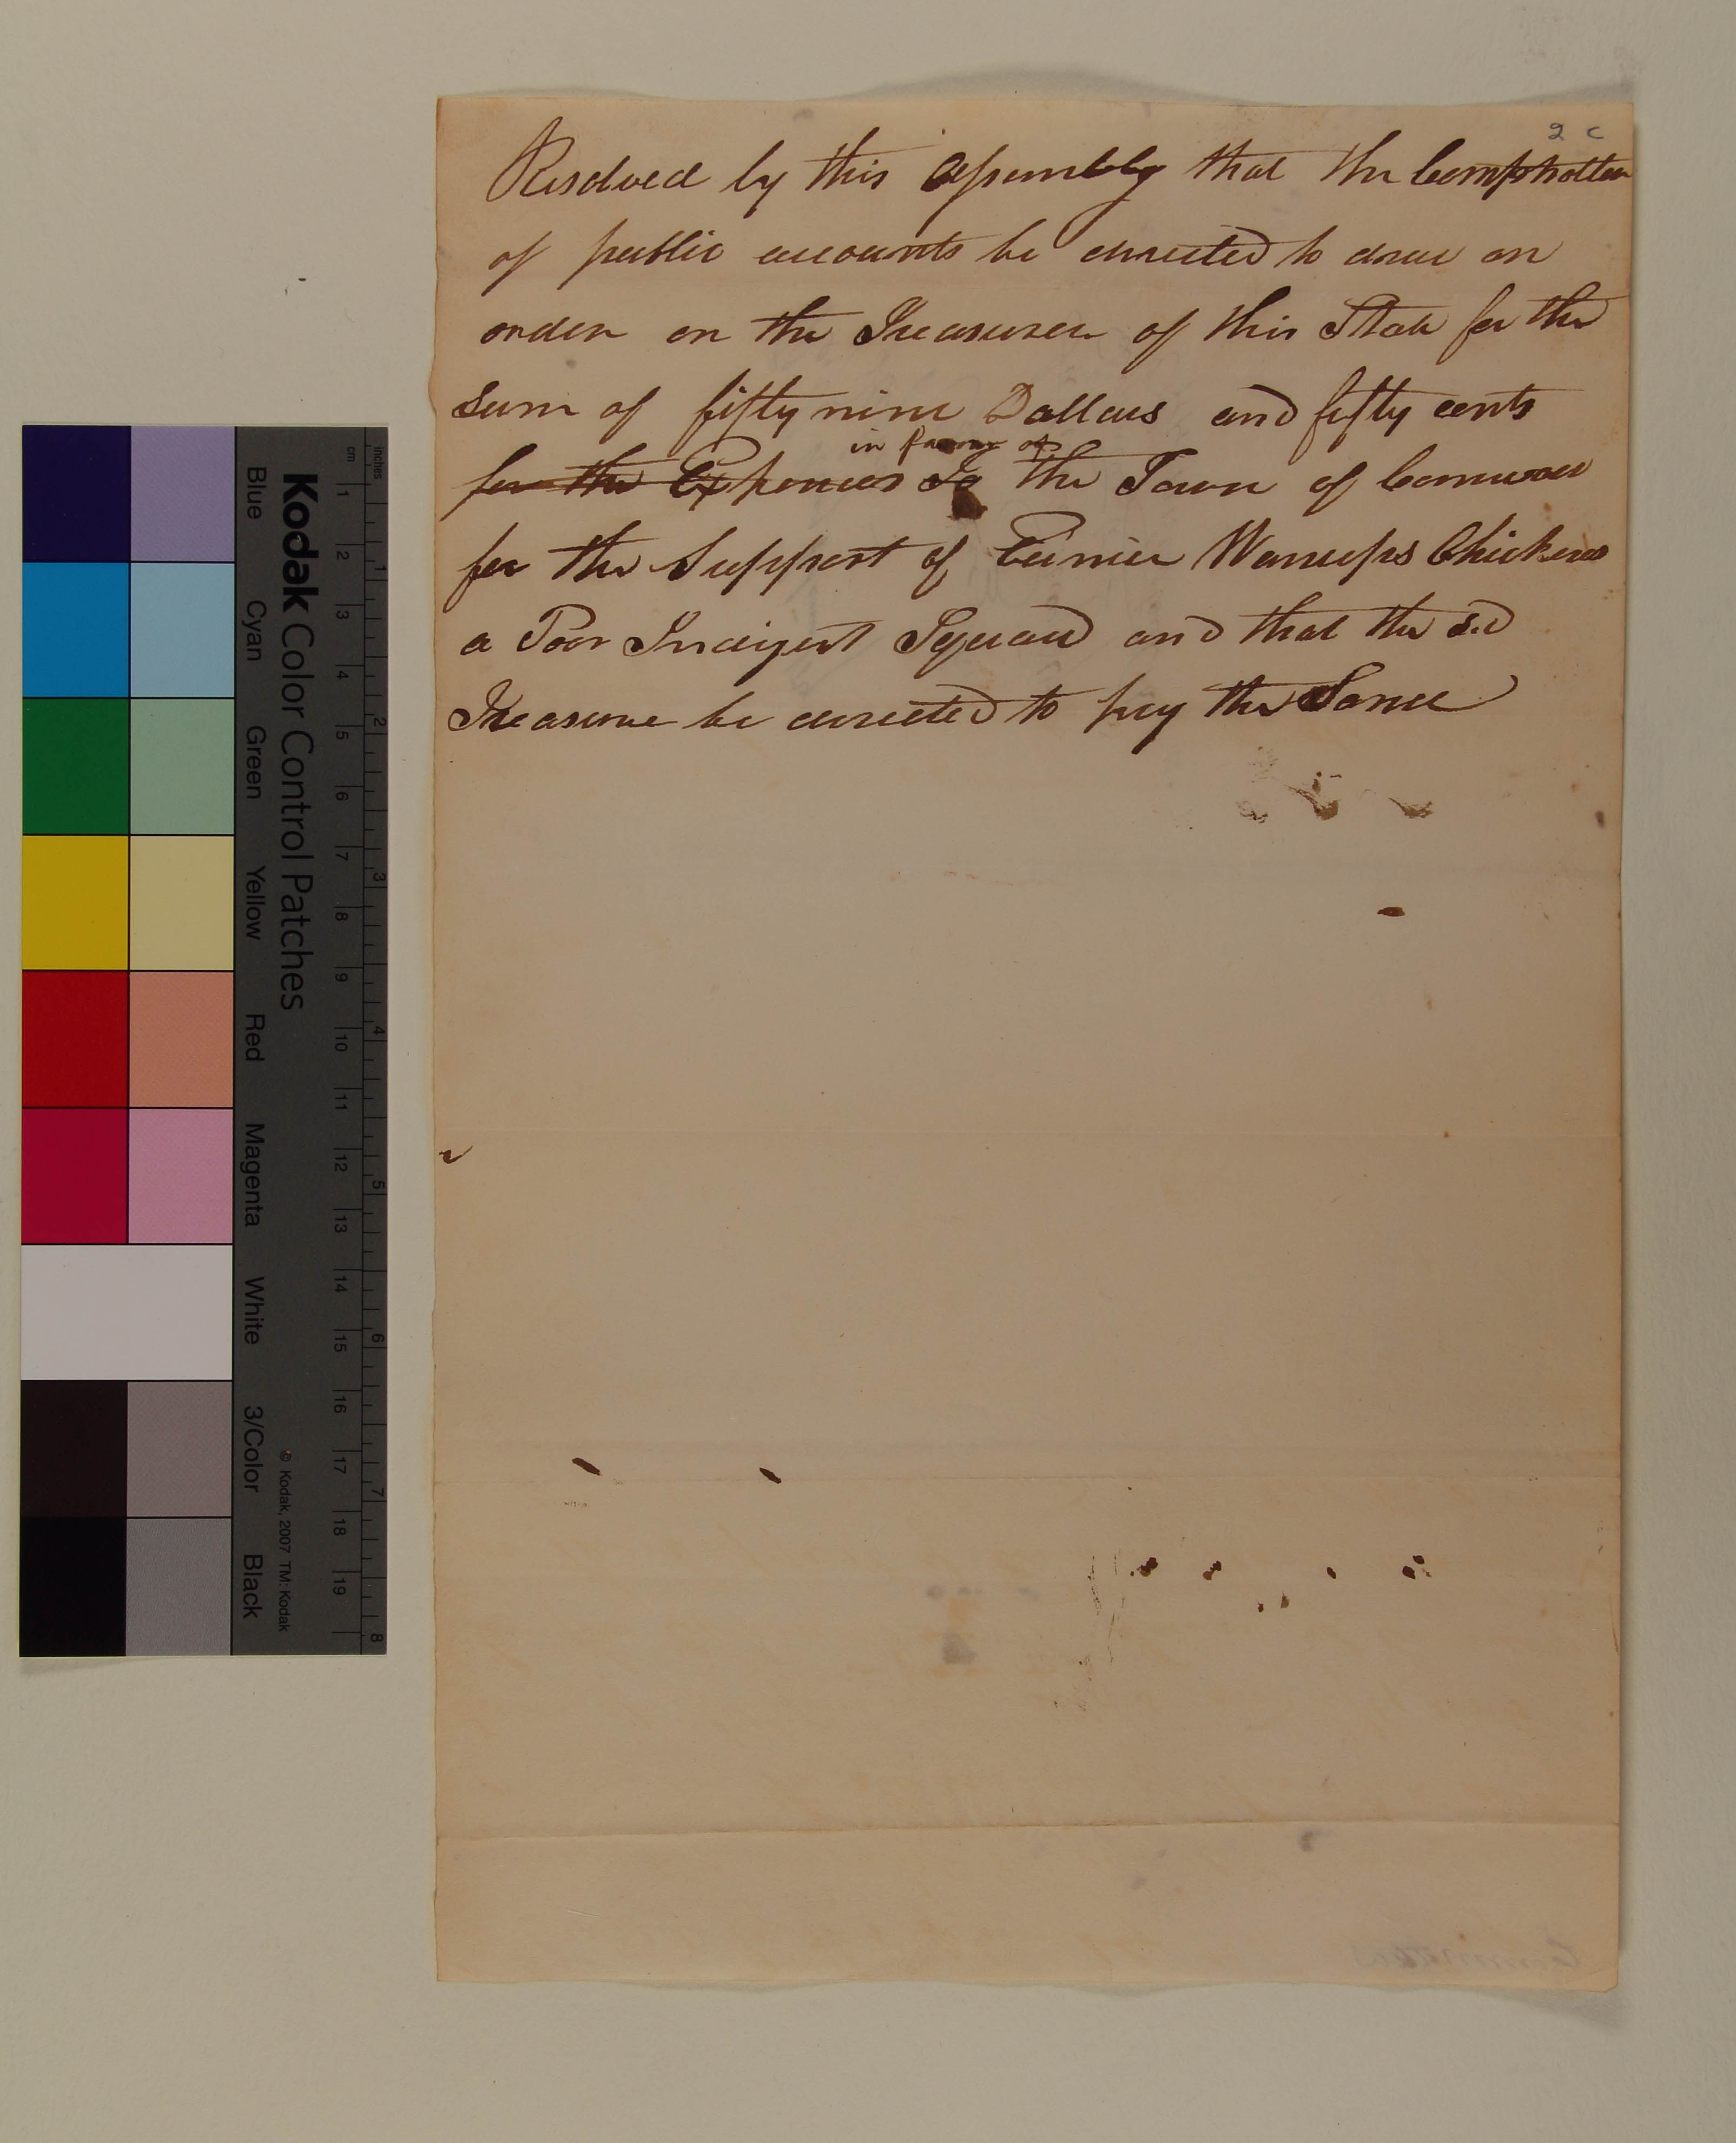 2 c
Resolved by this Assembly that the Comptroller
of public accounts be directed to draw an
order on the Treasurer of this State for the
Sum of fifty nine Dollars and fifty cents
in favour of
for the Expences To the Town of Cornwall
for the Support of Eunice Wanups Chickens
a Poor Indigent Squaw and that the sd
Treasurer be directed to pay the Same
Kodak Color Control Patches
Blue Cyan Green Yellow Red Magenta White 3/Color Black
© Kodak, 2007 TM: Kodak
cm 1 2 3 4 5 6 7 8 9 10 11 12 13 14 15 16 17 18 19
inches 1 2 3 4 5 6 7 8